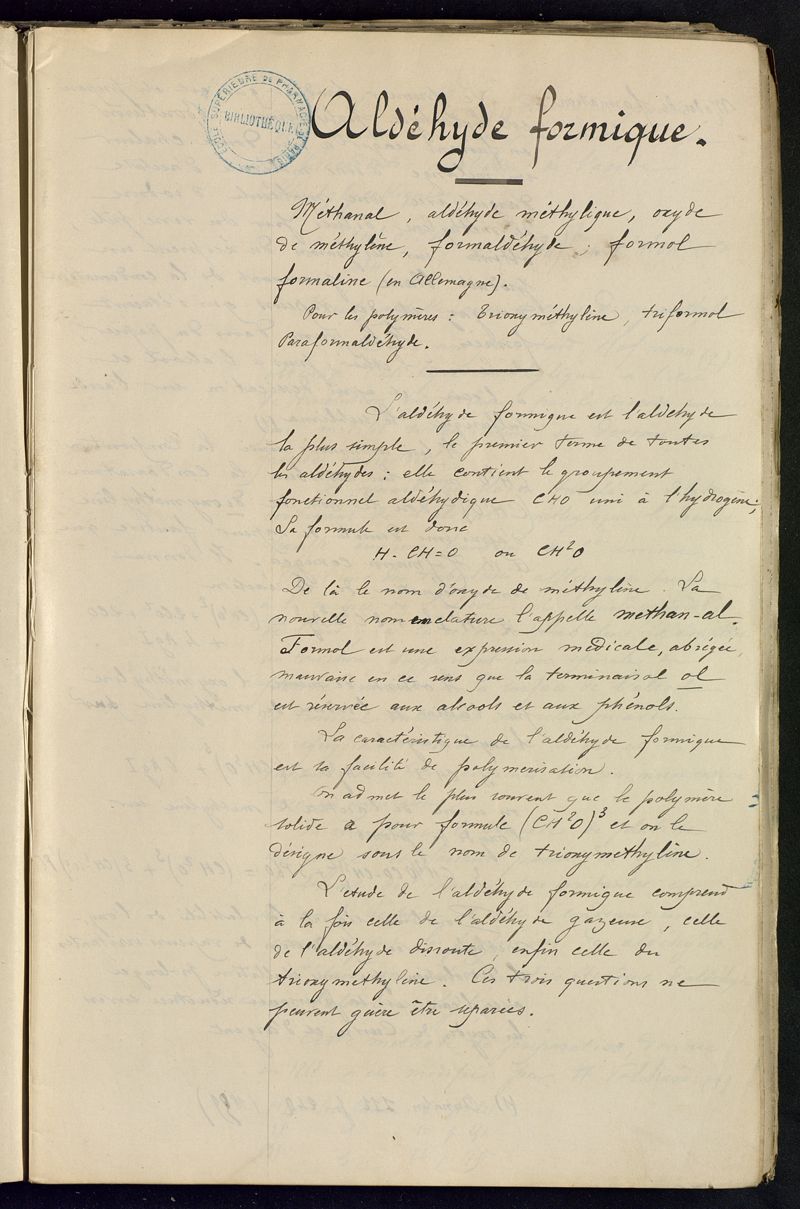 ÉCOLE SUPÉRIEURE DE PHARMACIE DE PARIS
BIBLIOTHÈQUE
Aldéhyde formique.
Méthanal, aldéhyde méthylique, oxyde
de méthylène, formaldéhyde, formol
formaline (en Allemagne).
Pour les polymères : Trioxyméthylène, triformol
Paraformaldéhyde.
L'aldéhyde formique est l'aldehyde
la plus simple, le premier terme de toutes
les aldéhydes : elle contient le groupement
fonctionnel aldéhydique CHO uni à l'hydrogène;
Sa formule est donc
H - CH = O ou CH²O
De là le nom d'oxyde de méthylène. La
nouvelle nomenclature l'appelle methan-al.
Formol est une expression médicale, abrégée,
mauvaise en ce sens que la terminaison ol
est réservée aux alcools et aux phénols.
La caractéristique de l'aldéhyde formique
est sa facilité de polymerisation.
On admet le plus souvent que le polymère
solide a pour formule (CH²O)³ et on le
désigne sous le nom de trioxymethylène.
L'étude de l'aldéhyde formique comprend
à la fois celle de l'aldéhyde gazeuse, celle
de l'aldéhyde dissoute, enfin celle du
trioxymethylène. Ces trois questions ne
peuvent guère être séparées.